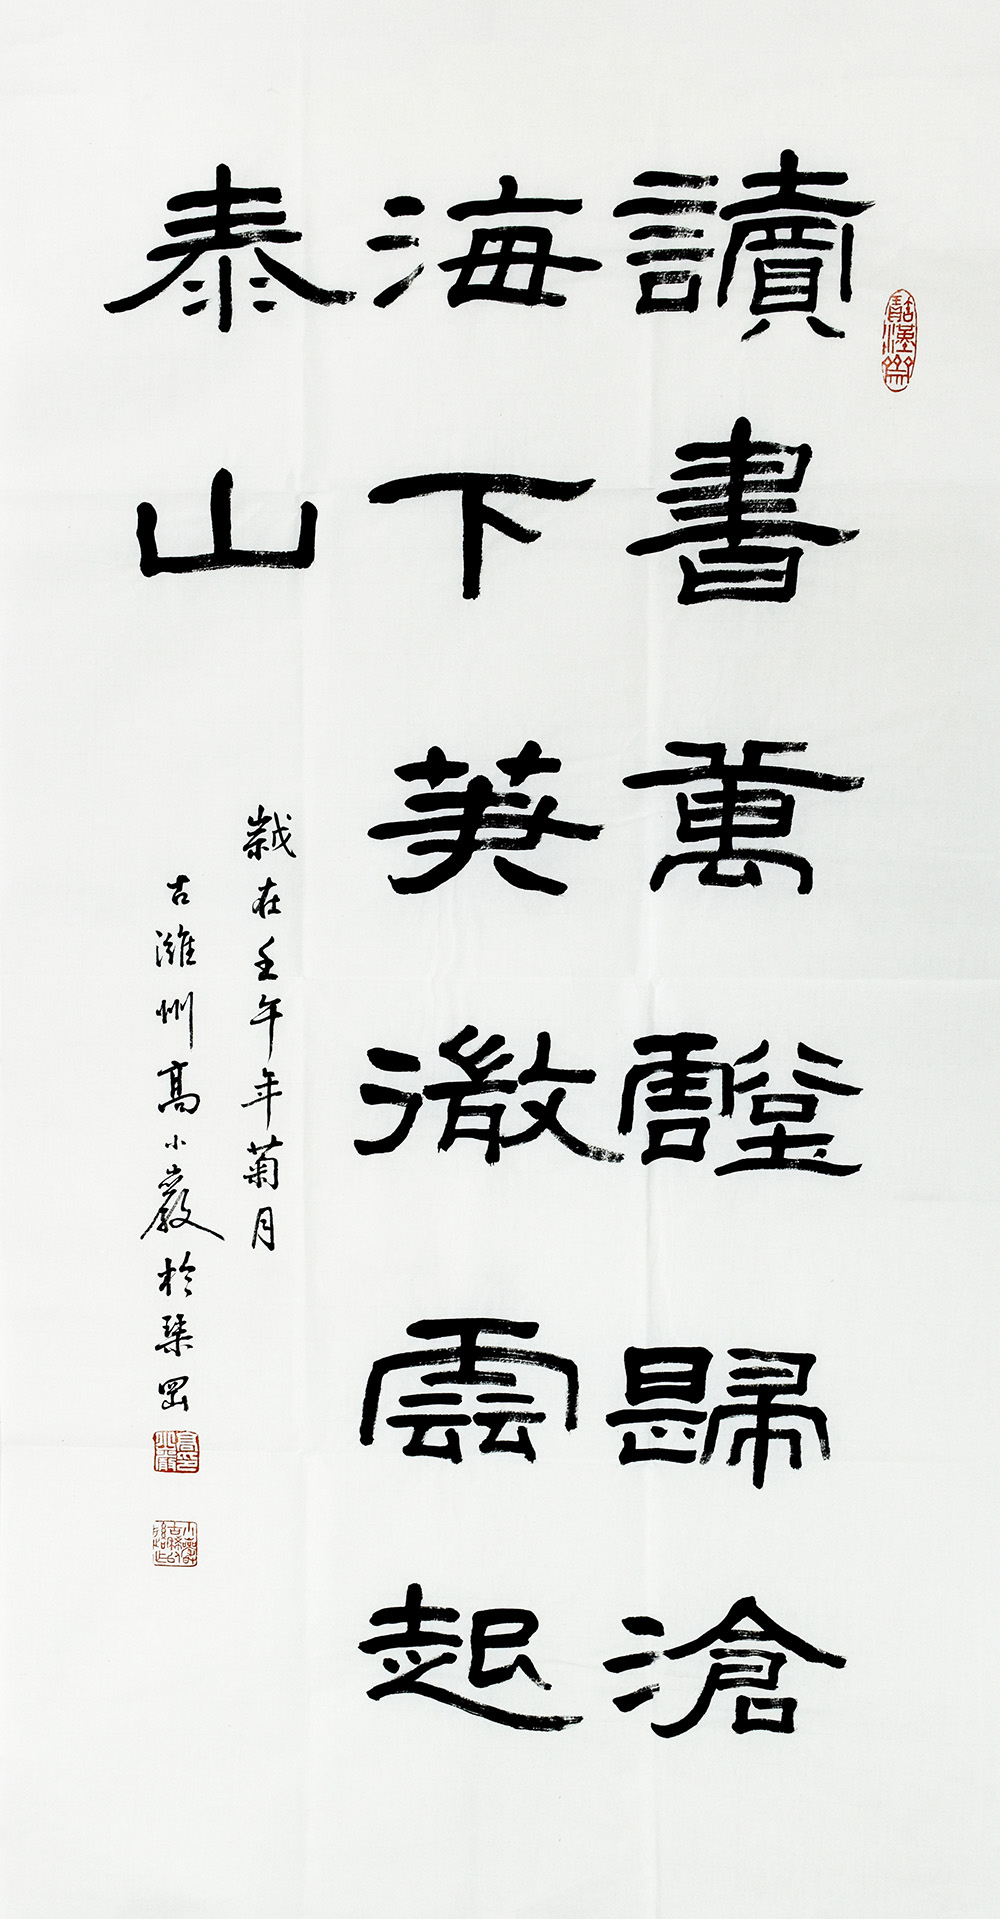 讀書萬壑歸滄
海下筆微雲起
泰山
歲在壬午年菊月
古濰州高小巖於琴岡